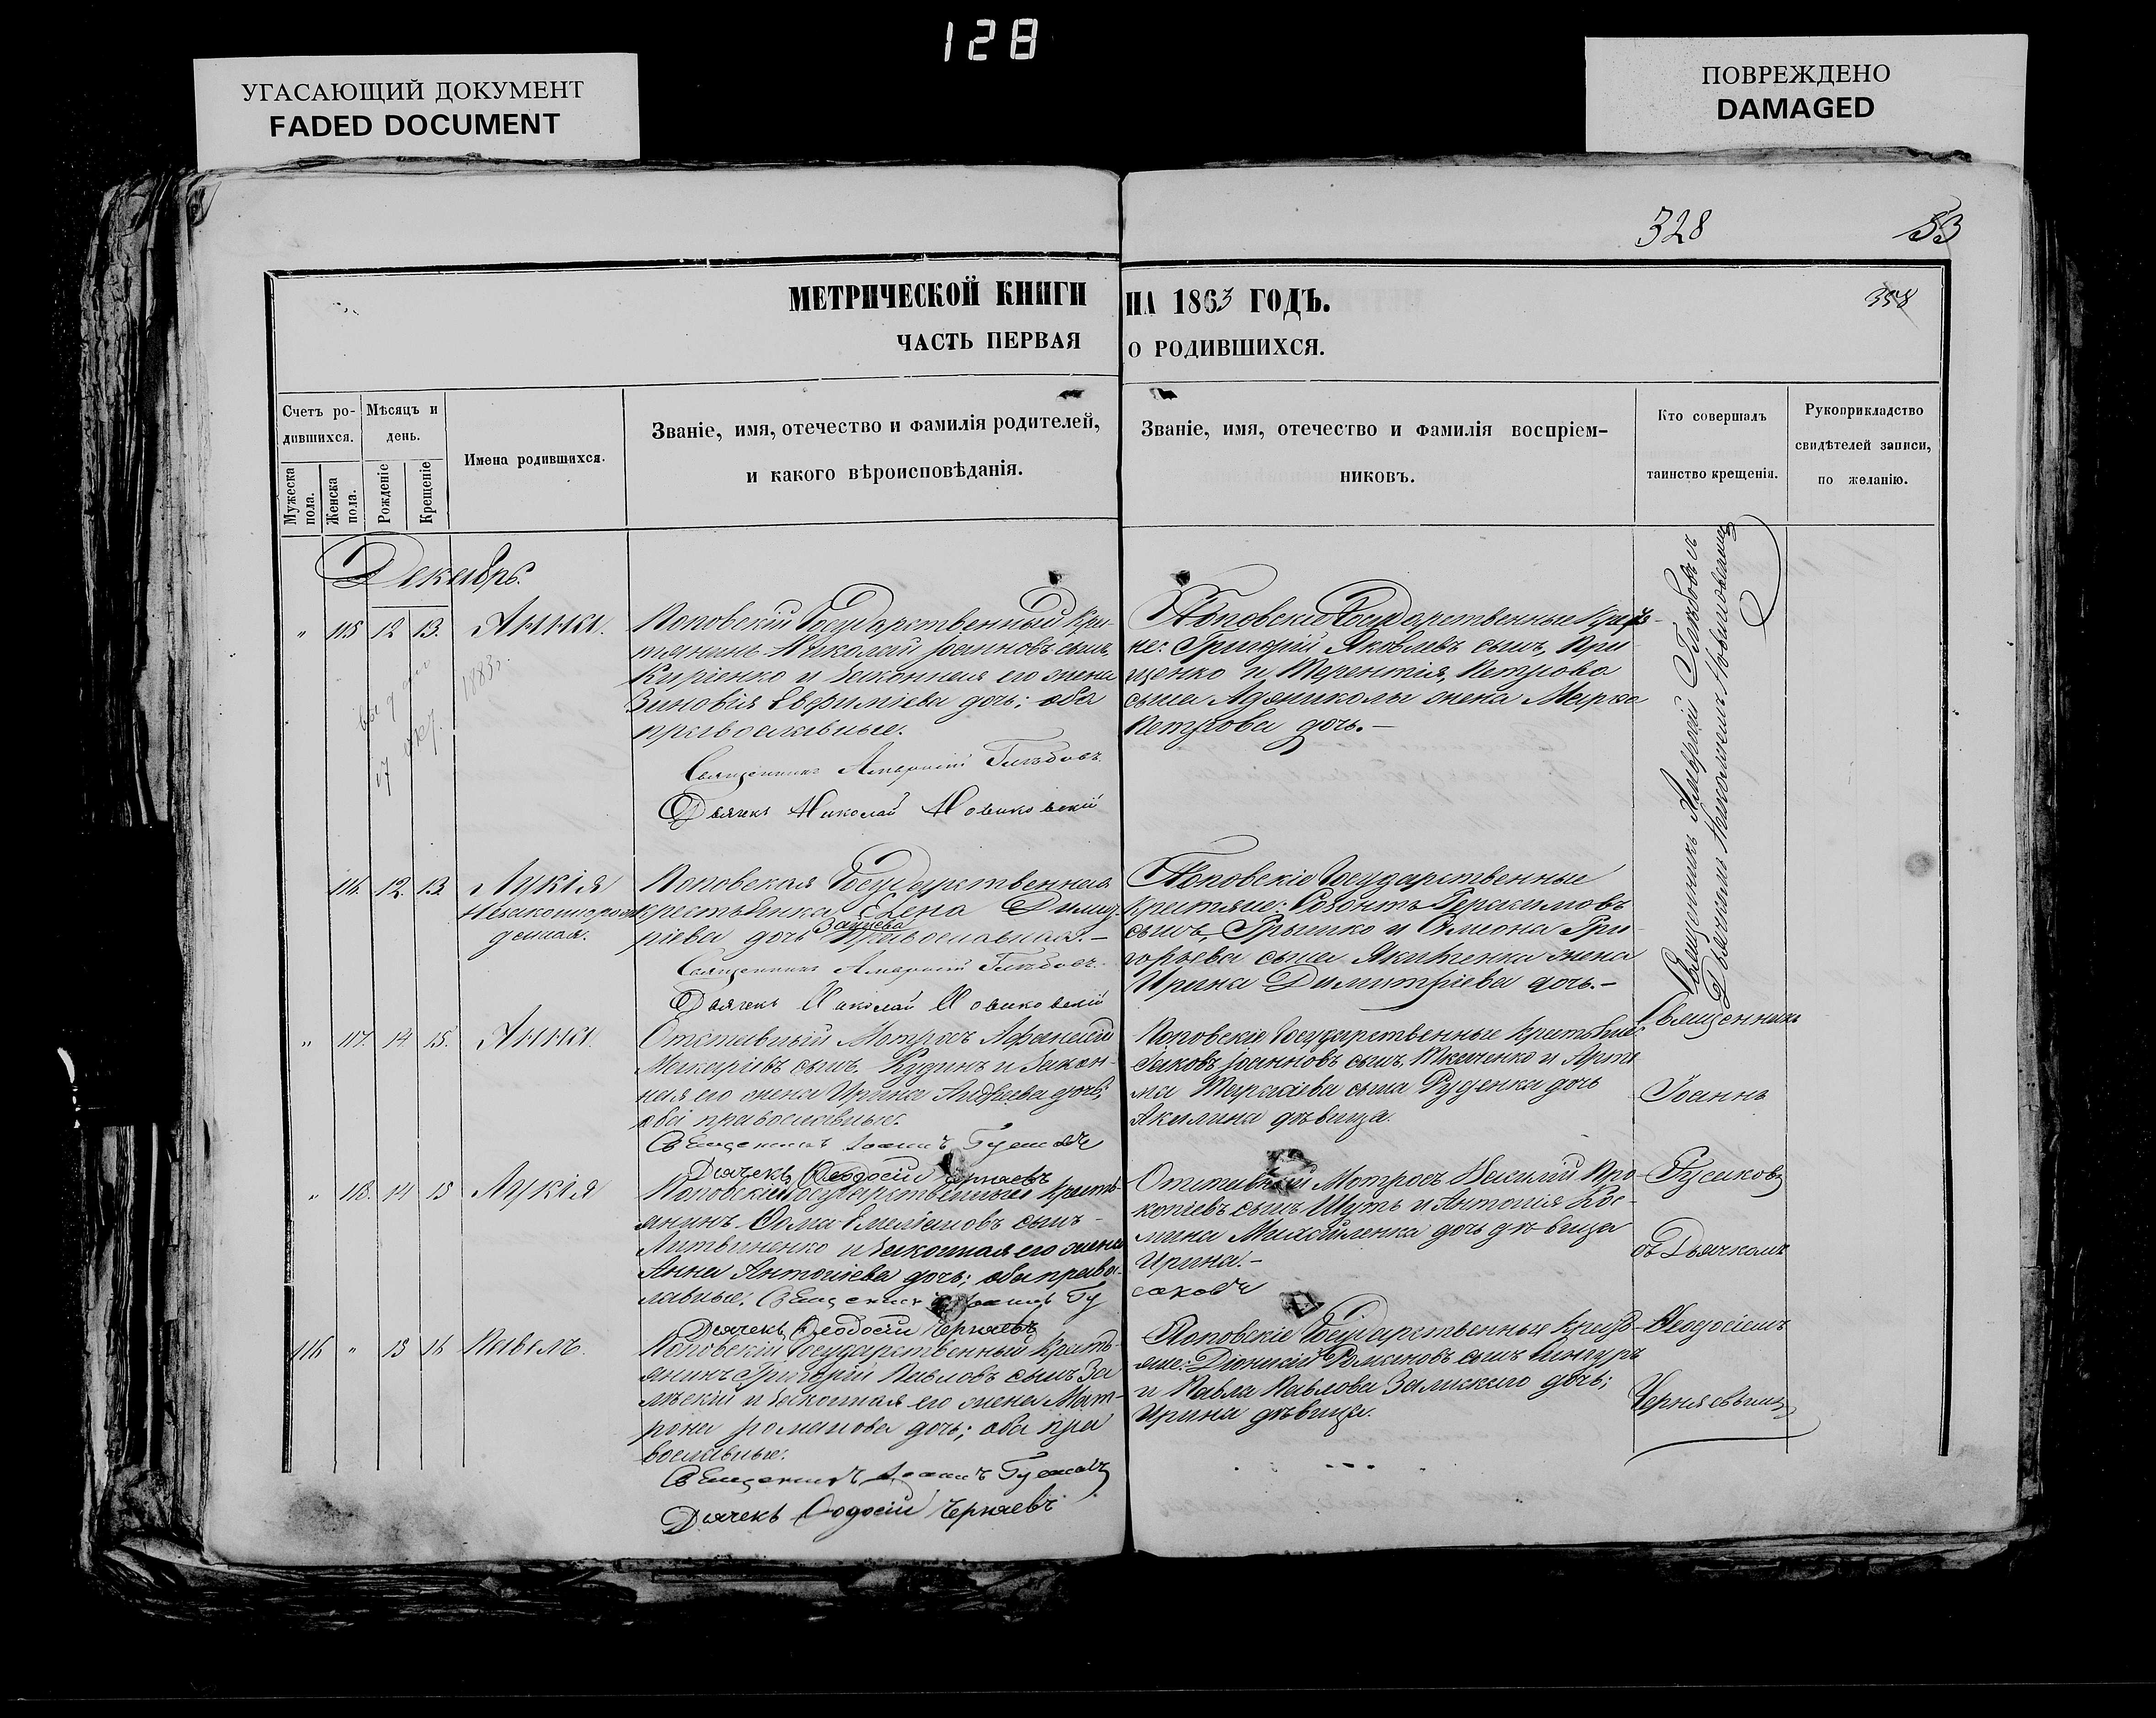 128
УГАСАЮЩИЙ ДОКУМЕНТ
FADED DOCUMENT
ПОВРЕЖДЕНО
DAMAGED
328
53
358
МЕТРИЧЕСКОЙ КНИГИ НА 1863 ГОДЪ.
ЧАСТЬ ПЕРВАЯ О РОДИВШИХСЯ.
Счетъ ро-
дившихся.
Мужеска пола.
Женска пола.
Мѣсяцъ и
день.
Рожденіе
Крещеніе
Имена родившихся.
Званіе, имя, отечество и фамилія родителей,
и какого вѣроисповѣданія.
Званіе, имя, отечество и фамилія воспріем-
никовъ.
Кто совершалъ
таинство крещенія.
Рукоприкладство
свидѣтелей записи,
по желанію.
Декабрь.
" 115 12 13. Анна.
Поповскій Государственный Кре-
стянинъ Николай Іоанновъ сынъ
Киріенко и Законная его жена
Зиновія Евфиміева дочь; оба
православные.
Священникъ Амвросій Глѣбовъ
Дьячекъ Николай Новиковскій
17
1883г.
Поповскіе Государственные
не: Григорій Яковлевъ сынъ,
щенко и Терентія, Петрова
сына жена Марѳа
Петрова дочь.—
116. 12. 13. Лукія
Незаконнорож
денная.
Поповская Государственная
крестьянка Елена Димит-
ріева дочь Зайцева Православная.—
Священникъ Амвросій Глѣбовъ
Дьячекъ Николай Новиковскій
Поповскіе Государственные
Герасимовъ
сынъ, Грышко и Симона Гри-
горьева сына Якименка жена
Ирина Димитріева дочь.—
Священникъ Амвросій Глѣбовъ съ
Дьячкомъ Николаемъ Новиковскимъ
" 117. 14. 15. Анна.
Отставный Матросъ Афанасій
Макаріевъ сынъ Кудинъ и Закон-
ная его жена Ирина дочь;
оба православные.
Священникъ Іоаннъ Гусаковъ
Дьячекъ Ѳеодосій Черняевъ
Поповскіе Государственные
Яковъ Іоанновъ сынъ, Ткаченко и Арте
ма Тарасіева сына Руденка дочь
Акилина дѣвица.
" 118. 14 15 Лукія
Поповскій Государственный Кресть-
янинъ Ѳома Емеліановъ сынъ
Литвиненко и Законная его жена
Анна Антоніева дочь; оба право-
славные. Священникъ Іоаннъ Гу
саковъ
Дьячекъ Ѳеодосій Черняевъ
Отставный Матросъ Василій Про
копіевъ сынъ Шуть и Антонія Кос-
мина Михайленка дочь дѣвица
Ирина.—
116 " 15 16 Павелъ.
Поповскій Государственный Кресть-
янинъ Григорій Павловъ сынъ За
мскій и Законная его жена Мат-
рона Романова дочь; оба пра
вославные.
Священникъ Іоаннъ Гусаковъ
Дьячекъ Ѳеодосій Черняевъ
Поповскіе Государственные
яне: Діонисій Романовъ сынъ
и Павла Павлова дочь;
Ирина дѣвица.
Священникъ
Іоаннъ
Гусаковъ
съ Дьячкомъ
Ѳеодосіемъ
Черняевымъ